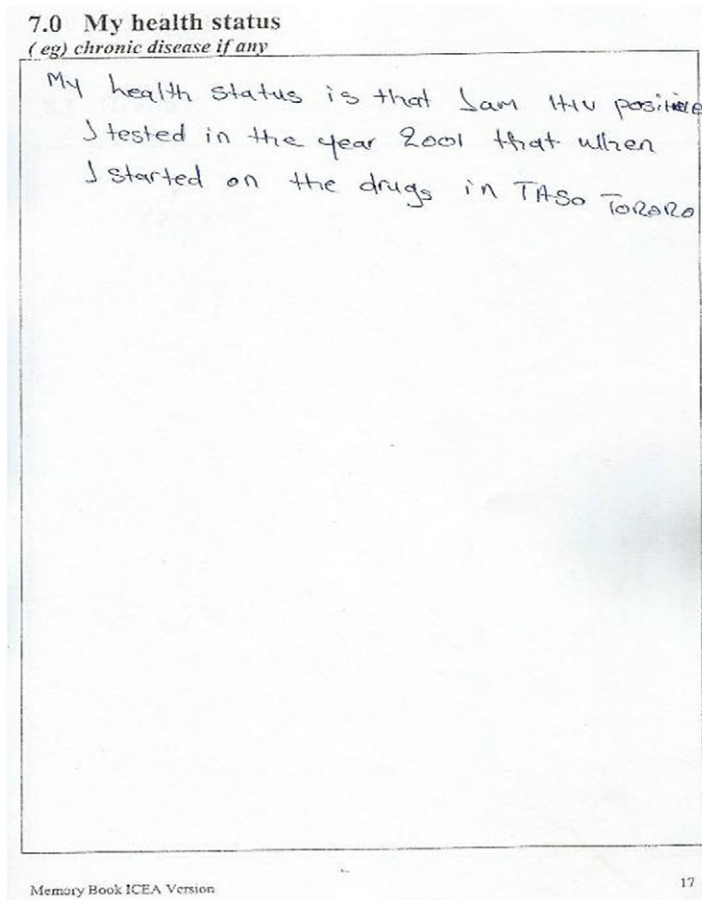 7.0 My health status
( eg) chronic disease if any
My health status is that I am HIV positive
I tested in the year 2001 that when
I started on the drugs in TASO TORORO
Memory Book ICEA Version
17